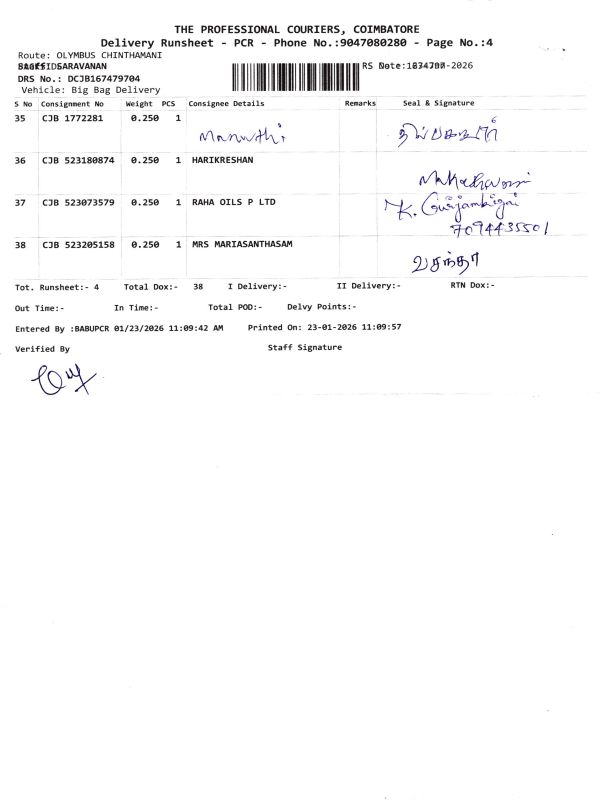 THE PROFESSIONAL COURIERS, COIMBATORE
Delivery Runsheet - PCR - Phone No.:9047080280 - Page No.:4
Route: OLYMBUS CHINTHAMANI
SARAVANAN RS -2026
DRS No.: DCJB167479704
Vehicle: Big Bag Delivery
S No Consignment No Weight PCS Consignee Details Remarks Seal & Signature
35 CJB 1772281 0.250 1 Maruthi
36 CJB 523180874 0.250 1 HARIKRESHAN
37 CJB 523073579 0.250 1 RAHA OILS P LTD K.
7094435501
38 CJB 523205158 0.250 1 MRS MARIASANTHASAM வசந்தா
Tot. Runsheet:- 4 Total Dox:- 38 I Delivery:- II Delivery:- RTN Dox:-
Out Time:- In Time:- Total POD:- Delvy Points:-
Entered By :BABUPCR 01/23/2026 11:09:42 AM Printed On: 23-01-2026 11:09:57
Verified By Staff Signature